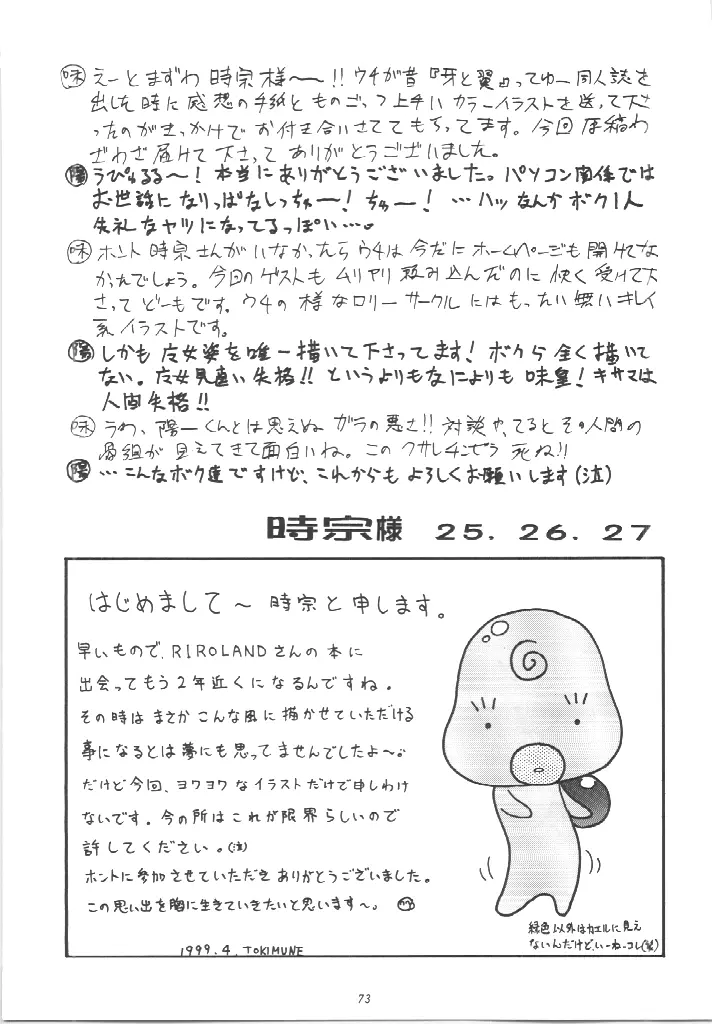 味 えーとまずわ 時宗様〜〜!! ウチが昔『牙と翼』ってゆー同人誌を
出した時に感想の手紙と ものごっつ上手い カラーイラストを送って下さ
ったのがきっかけで お付き合いさせてもらってます。今回 原稿わ
ざわざ届けて下さって ありがとうございました。
陽 うぴゅるる〜! 本当にありがとうございました。パソコン関係では
お世話になりっぱなしっちゅー! ちゅー! …ハッなんかボク1人
失礼なヤツになってるっぽい…。
味 ホント 時宗さんがいなかったら ウチは今だに ホームページも開けてな
かったでしょう。今回のゲストも ムリヤリ頼み込んだのに 快く受けて下
さって どーもです。ウチの様なロリーサークルにはもったい無いキレイ
系イラストです。
陽 しかも 成女姿を唯一描いて下さってます! ボクら全く描いて
ない。成女見直い失格!! というよりもなによりも 味皇! キサマは
人間失格!!
味 うわ、陽一くんとは思えぬ ガラの悪さ!! 対談やってるとその人間の
番組が見えてきて面白いね。このクサレ 死ね!!
陽 …こんなボク達ですけど、これからも よろしくお願いします(泣)
時宗様 25. 26. 27
はじめまして〜 時宗と申します。
早いもので、RIROLANDさんの本に
出会ってもう2年近くになるんですね。
その時は まさかこんな風に描かせていただける
事になるとは夢にも思ってませんでしたよ〜。
だけど今回、ヨワヨワなイラストだけで申しわけ
ないです。今の所はこれが限界らしいので
許してください。(泣)
ホントに参加させていただき ありがとうございました。
この思い出を胸に生きていきたいと思います〜。
緑色以外はカエルに見え
ないんだけど、いーねーコレ(笑)
1999.4. TOKIMUNE
73